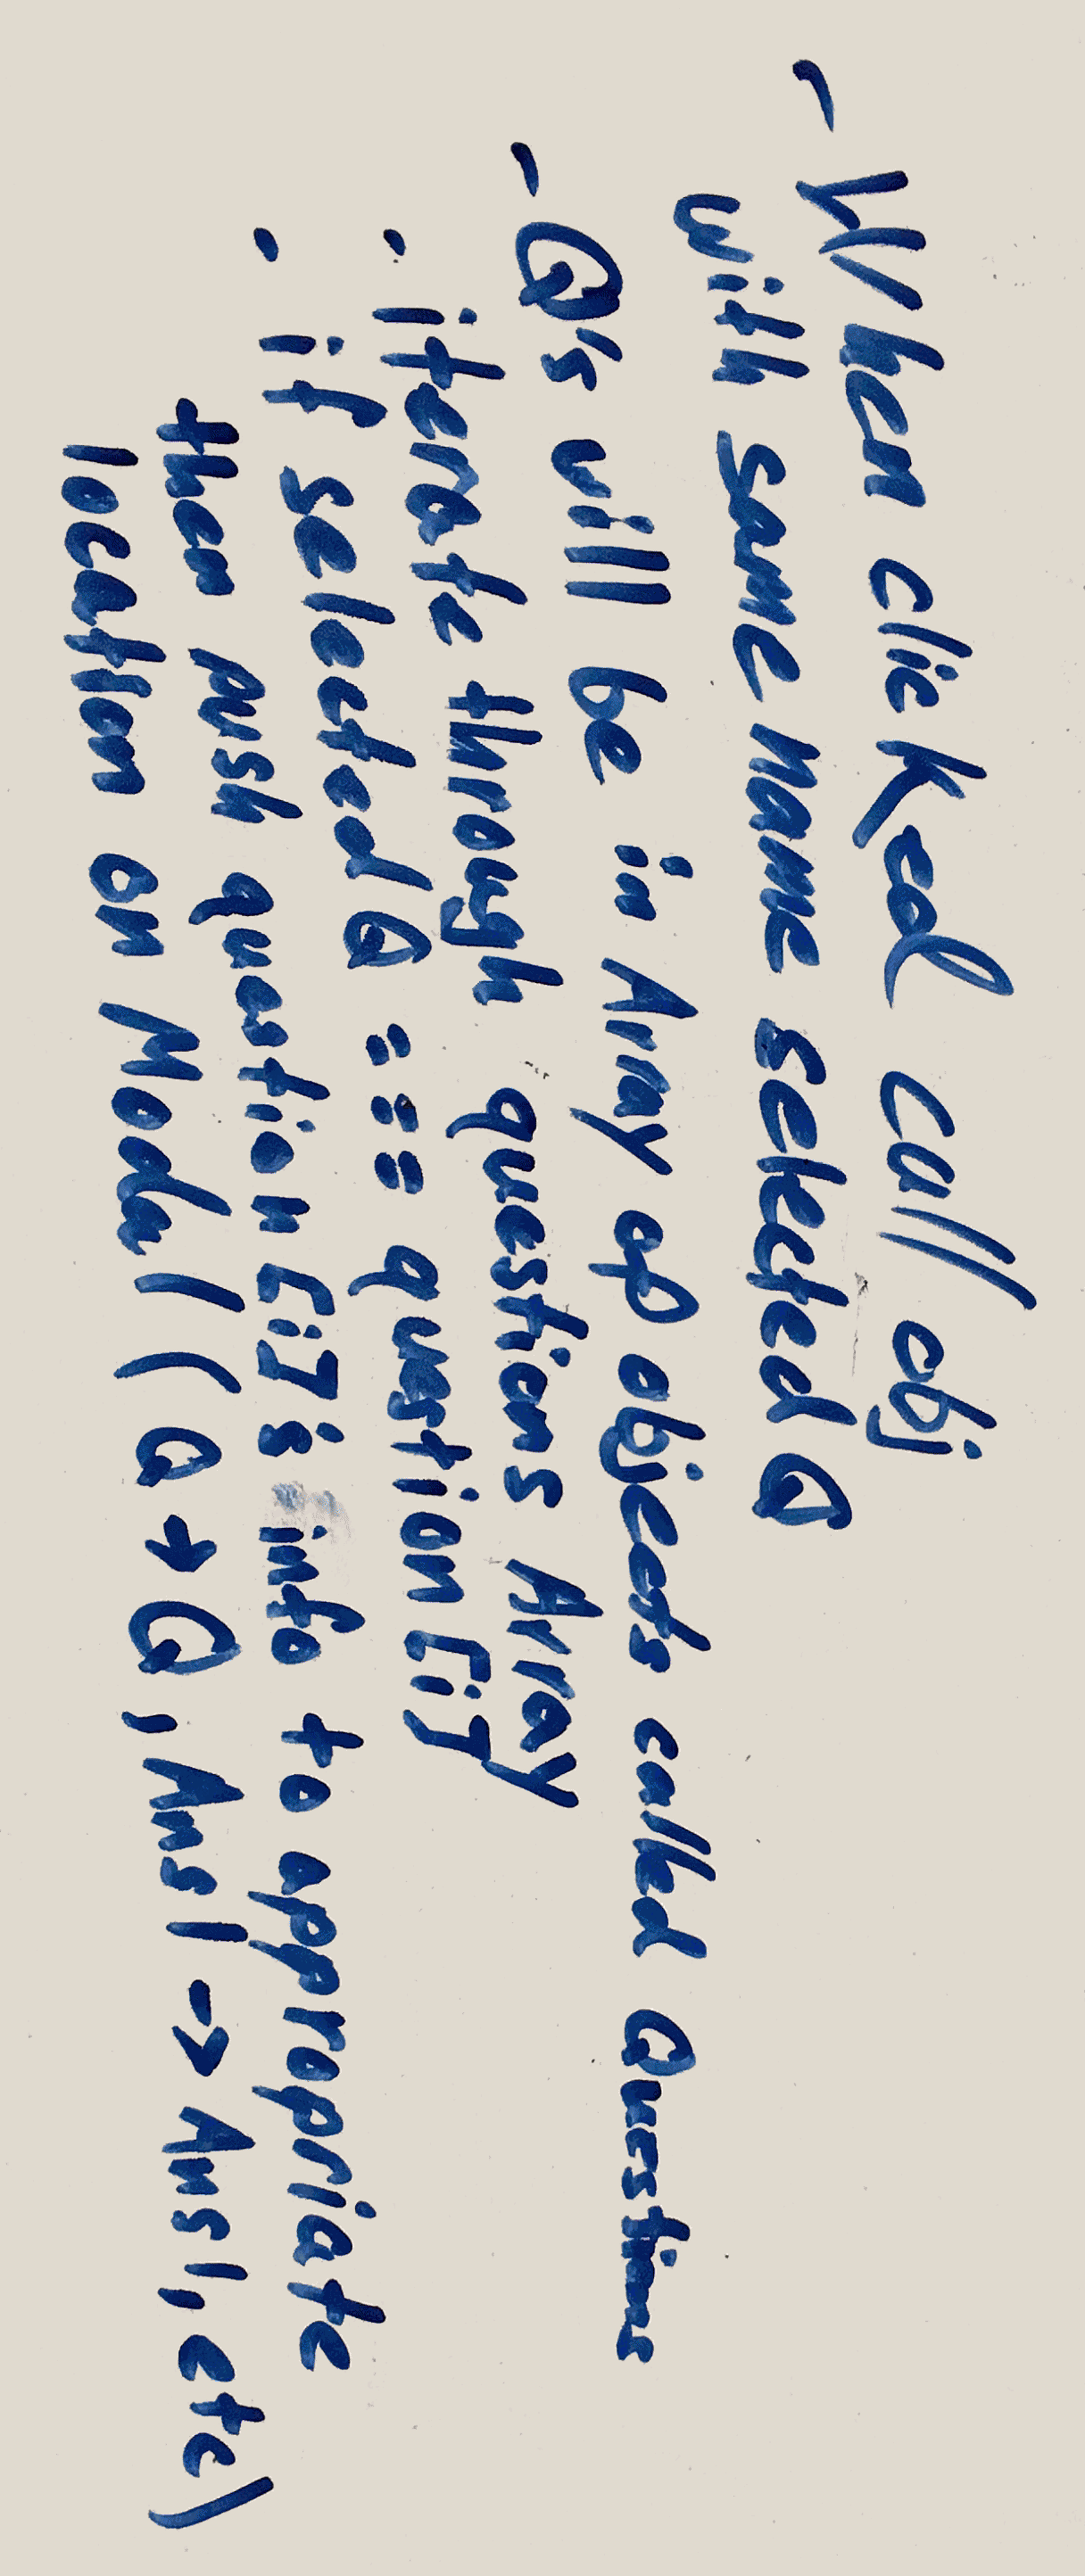 - When clicked call obj
with same name selected Q
- Q's will be in Array of objects called Questions
· iterate through questions Array
· if selectedQ === question[i]
then push question[i]'s info to appropriate
location on Modal (Q → Q, Ans1 → Ans1, etc)